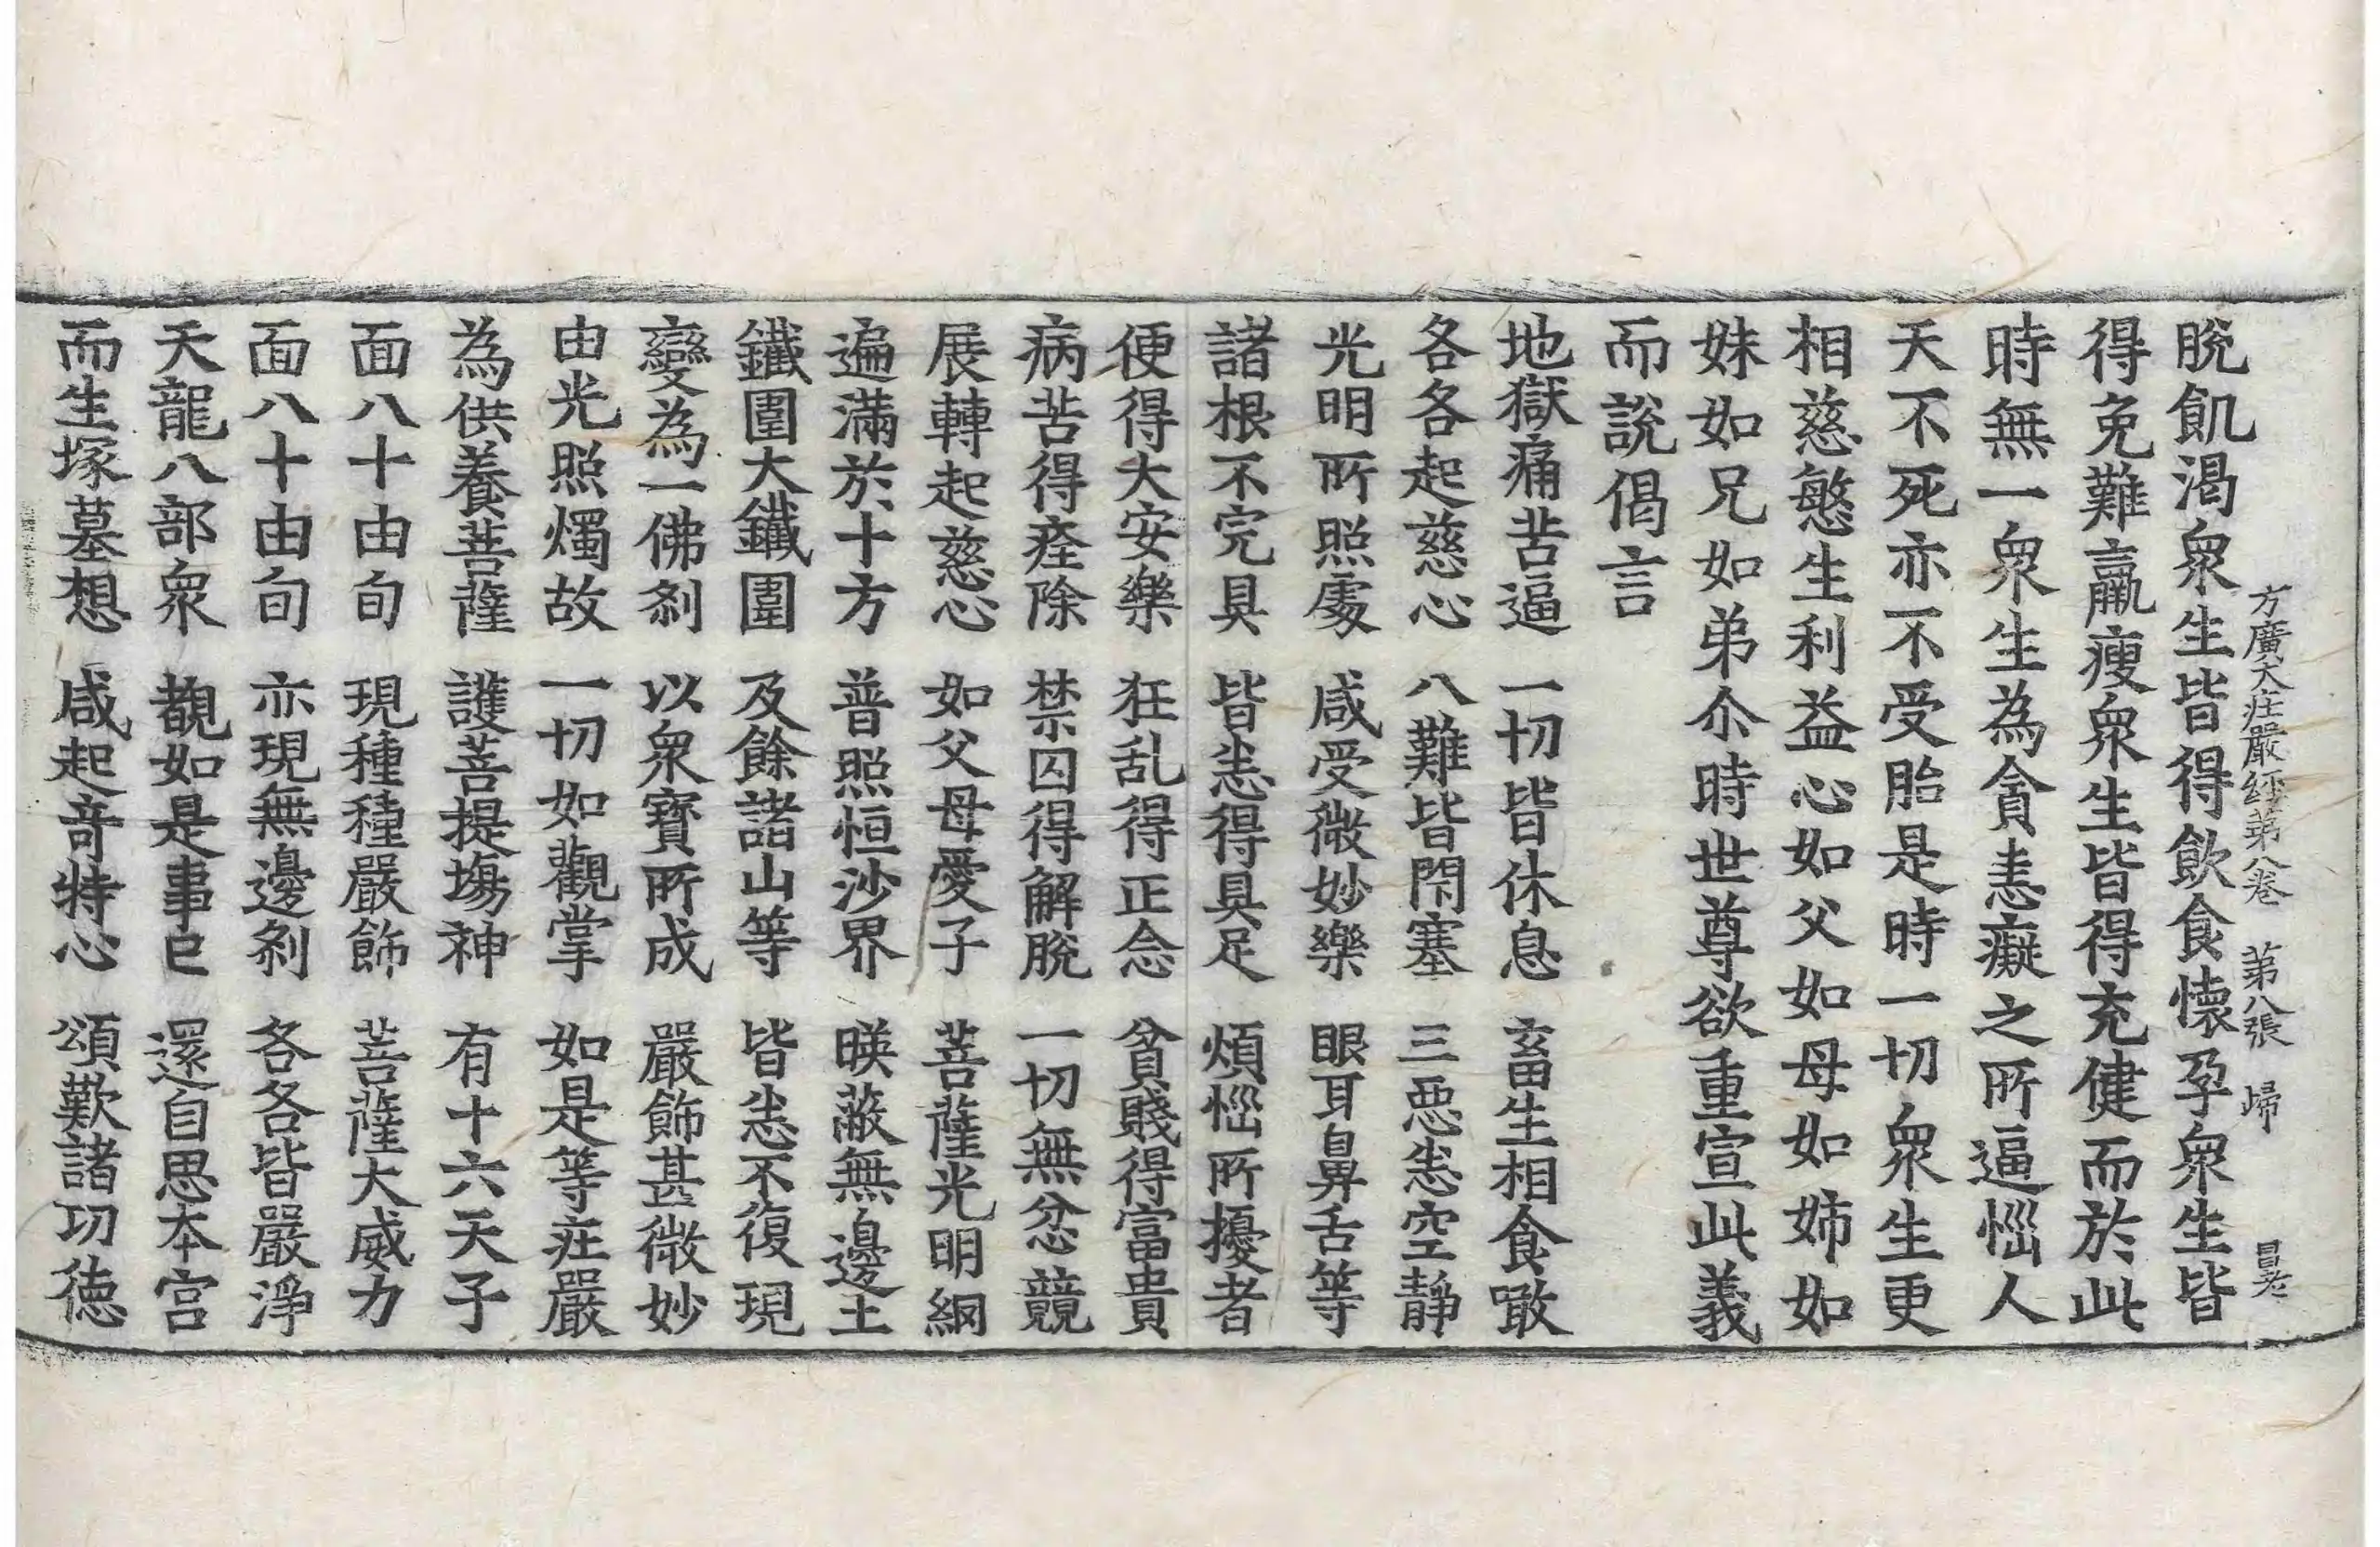 方廣大庄嚴経苐八卷 苐八張 㱕
脫飢渴衆生皆得飲食懷孕衆生皆
得免難羸瘦衆生皆得充健而於此
時無一衆生為貪恚癡之所逼惱人
天不死亦不受胎是時一切衆生更
相慈愍生利益心如父如母如姉如
妹如兄如弟尒時世尊欲重宣此義
而說偈言
地獄痛苦逼 一切皆休息 畜生相食噉
各各起慈心 八難皆閇塞 三惡悉空靜
光明所照處 咸受微妙樂 眼耳鼻舌等
諸根不完具 皆悉得具足 煩惱所擾者
便得大安樂 狂乱得正念 貧賤得富貴
病苦得痊除 禁囚得解脫 一切無忿競
展轉起慈心 如父母愛子 菩薩光明網
遍滿於十方 普照恒沙界 暎蔽無邊土
鐵圍大鐵圍 及餘諸山等 皆悉不復現
變為一佛刹 以衆寶所成 嚴飾甚微妙
由光照燭故 一切如觀掌 如是等庄嚴
為供養菩薩 護菩提場神 有十六天子
面八十由旬 現種種嚴飾 菩薩大威力
面八十由旬 亦現無邊刹 各各皆嚴淨
天龍八部衆 覩如是事已 還自思本宮
而生塚墓想 咸起奇特心 頌歎諸功德